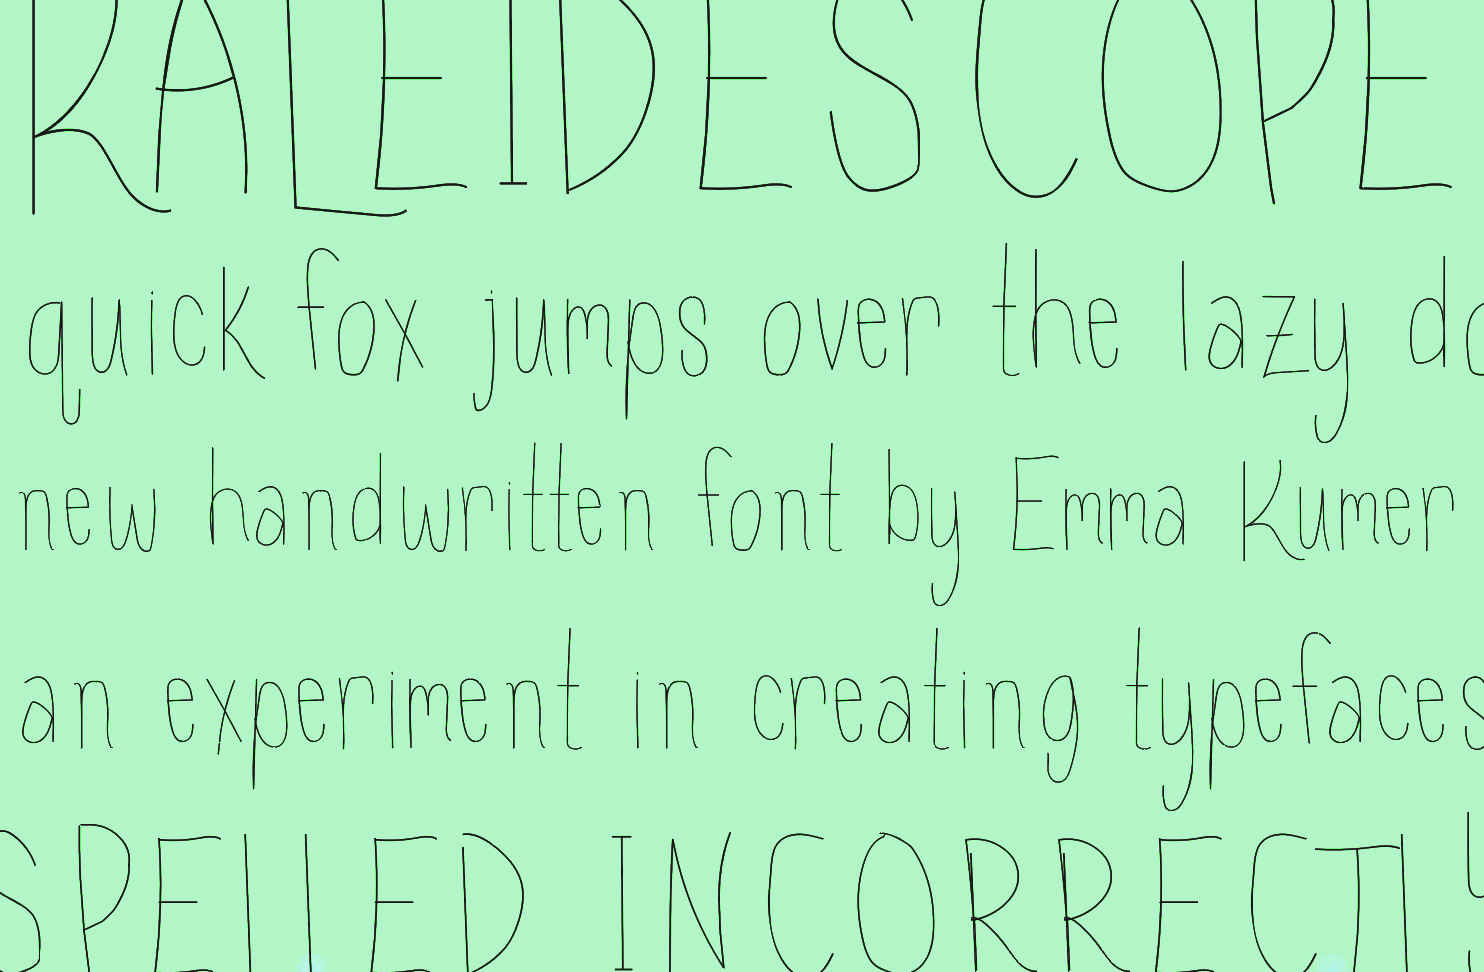 KALEIDESCOPE
quick fox jumps over the lazy do
new handwritten font by Emma Kumer
an experiment in creating typefaces
SPELLED INCORRECTLY